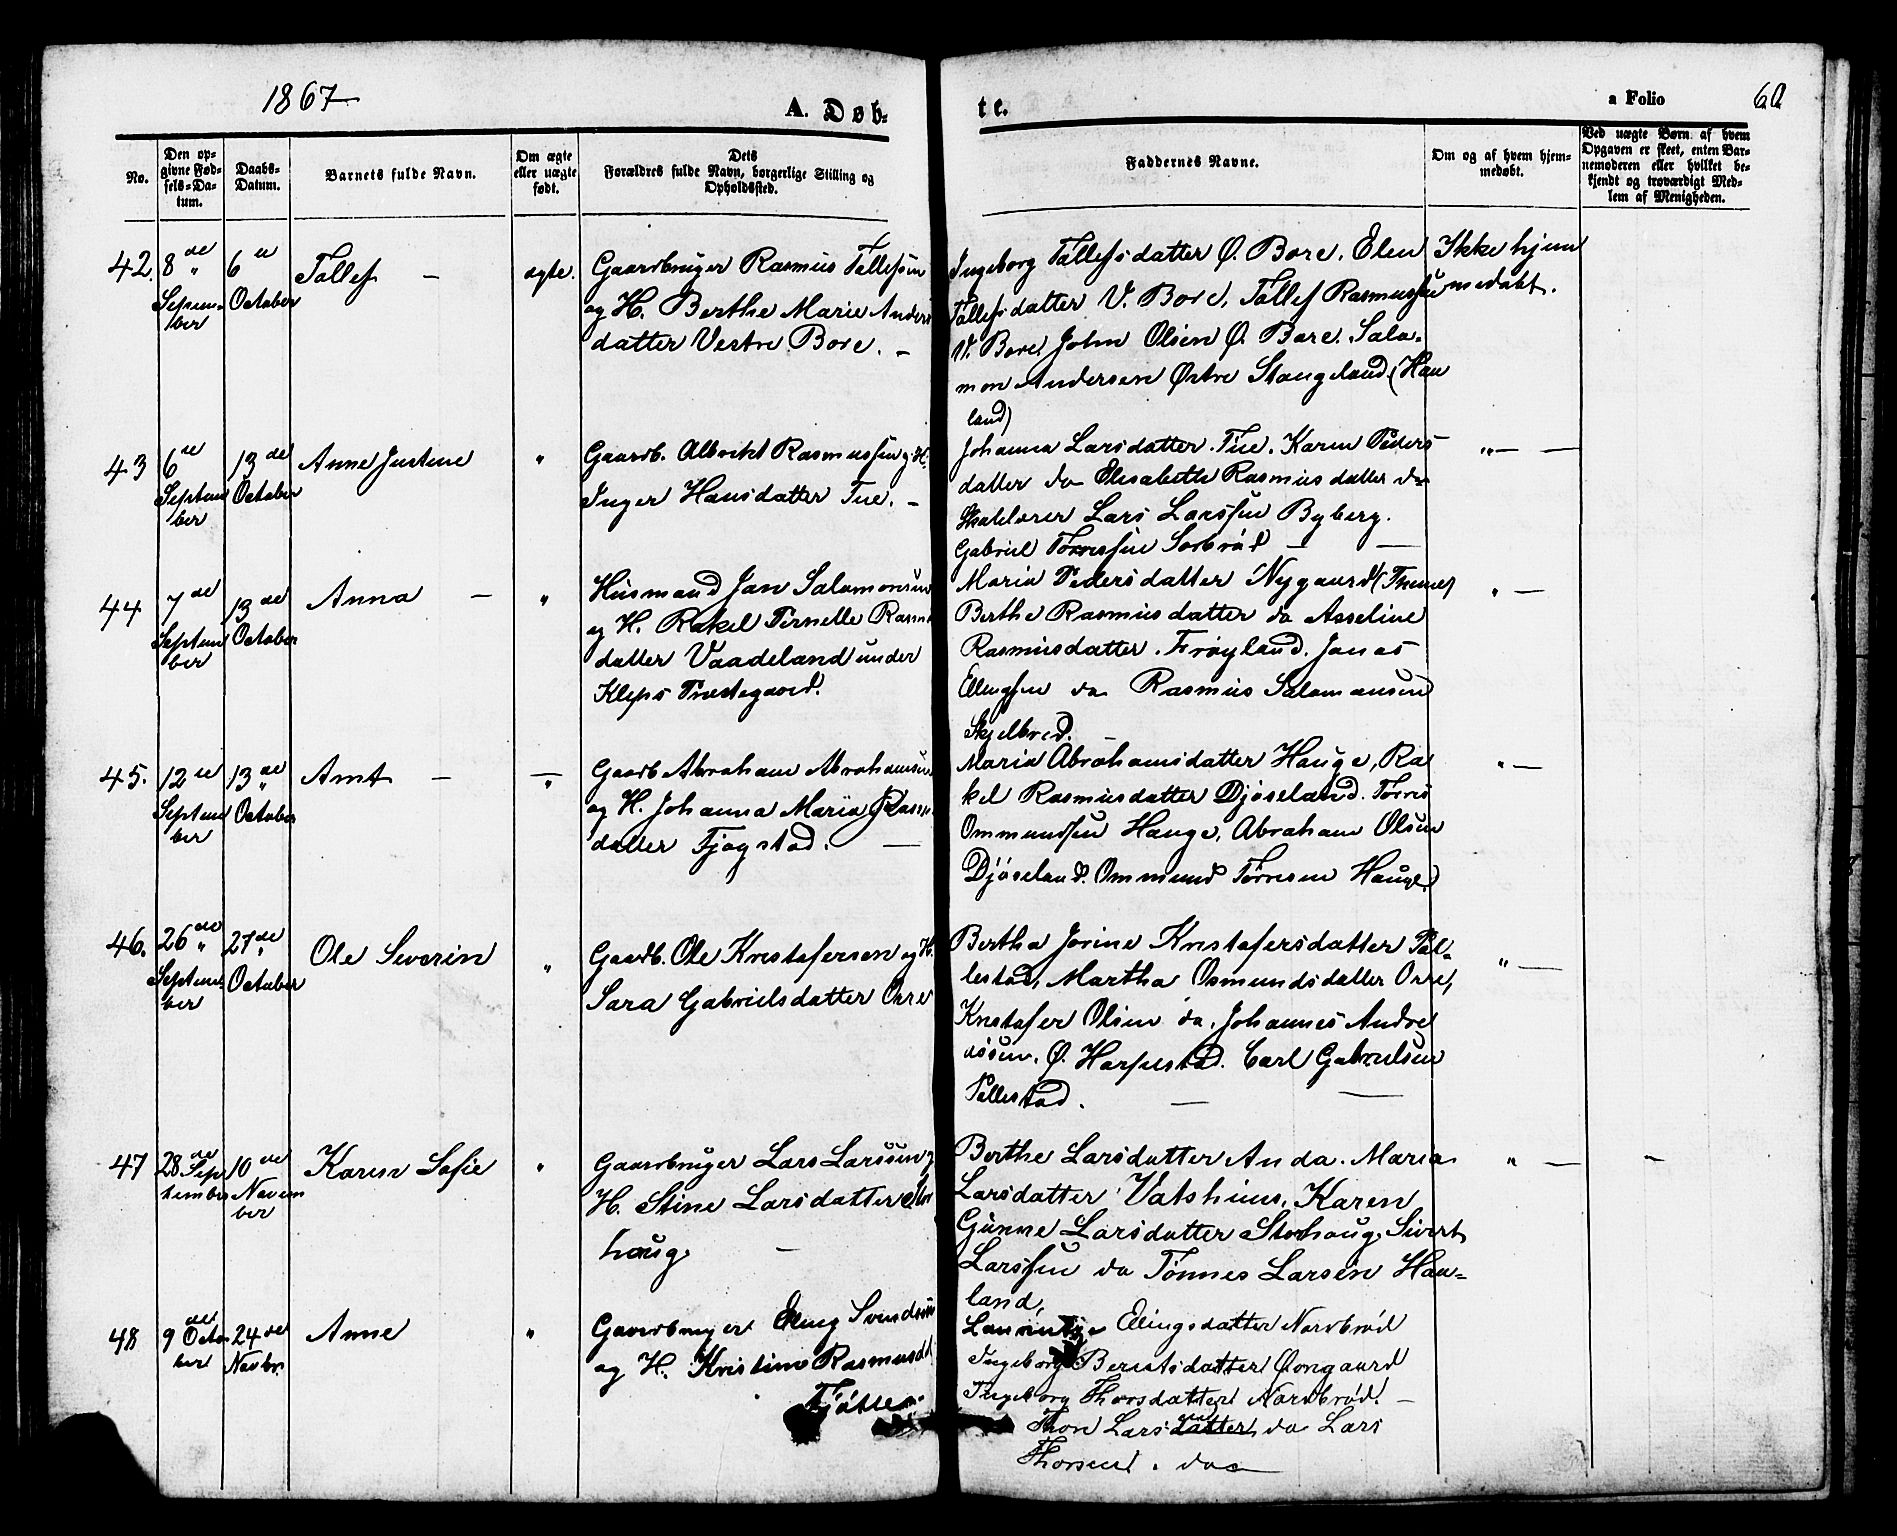 1867
A. Døb-
te.
a Folio 60
No.
Den op-
givne Fød-
sels-Da-
tum.
Daabs-
Datum.
Barnets fulde Navn.
Om ægte
eller uægte
født.
Dets
Forældres fulde Navn, borgerlige Stilling og
Opholdssted.
Faddernes Navne.
Om og af hvem hjem-
medøbt.
Ved uægte Børn af hvem
Opgaven er skeet, enten Bar-
nemoderen eller hvilket be-
kjendt og troværdigt Med-
lem af Menigheden.
42. 8de September
6te October
Tollef —
ægte.
Gaardbruger Rasmus Tollefsen
og H. Berthe Marie Anders
datter Vestre Bore. —
Ingeborg Tollefsdatter Ø. Bore, Elen
Tollefsdatter V. Bore, Tollef Rasmussen
V. Bore, John Olsen Ø. Bore. Salo-
mon Andersen Østre Stangeland (Hau
land)
Ikke hjem
medøbt.
43 6te September
13de October
Anne Justine
"
Gaardb. Albrikt Rasmussen og H.
Inger Hansdatter Tue. —
Johanna Larsdatter Tue. Karen Peders
datter do Elisabeth Rasmusdatter do
Skolelærer Lars Larssen Byberg.
Gabriel Tørressen Sorbrød — —
" — —
44 7de September
13de October
Anna —
"
Husmand Jan Salomonsen
og H. Rakel Pernelle Rasm
datter Vaadeland under
Kleps Præstegaard.
Maria Pedersdatter Nygaard (Thime)
Berthe Rasmusdatter do Asseline
Rasmusdatter Frøyland. Jonas
Elingsen do Rasmus Salomonsen
Skjelbred.
" —
45. 12te September
13de October
Amt —
— "
Gaardb Abraham Abrahamsen
og H. Johanna Maria Rasm
datter Fjogstad. —
Maria Abrahamsdatter Hauge, Ra
kel Rasmusdatter Djøseland. Tørres
Ommundsen Hauge, Abraham Olsen
Djøseland. Ommund Tørresen Hauge
" —
46. 26de September
27de October
Ole Severin
"
Gaardb. Ole Kristofersen og H.
Sara Gabrielsdatter Orre
Bertha Jorine Kristofersdatter Pol-
lestad, Martha Osmundsdatter Orre,
Kristofer Olsen do. Johannes Andre
assen. Ø. Horpestad. Carl Gabrielsen
Pollestad. — —
" —
47 28de September
10de November
Karen Sofie
"
Gaardbruger Lars Larssen og
H. Stine Larsdatter Stor
haug. —
Berthe Larsdatter Anda. Maria
Larsdatter Vatshuus, Karen
Gunne Larsdatter Storhaug. Sivert
Larssen do Tønnes Larsen Hau-
land,
" — —
48 9de October
24de Novbr.
Anne
"
Gaardbruger Eling Svendsen
og H. Kristine Rasmusdt
Tjøtte
Elingsdatter Nordbrød
Ingeborg Berntsdatter Øvregaard
Ingeborg Thorsdatter Nordbrød. —
Thore Larsdatter sen do Lars
Thorsen. do —